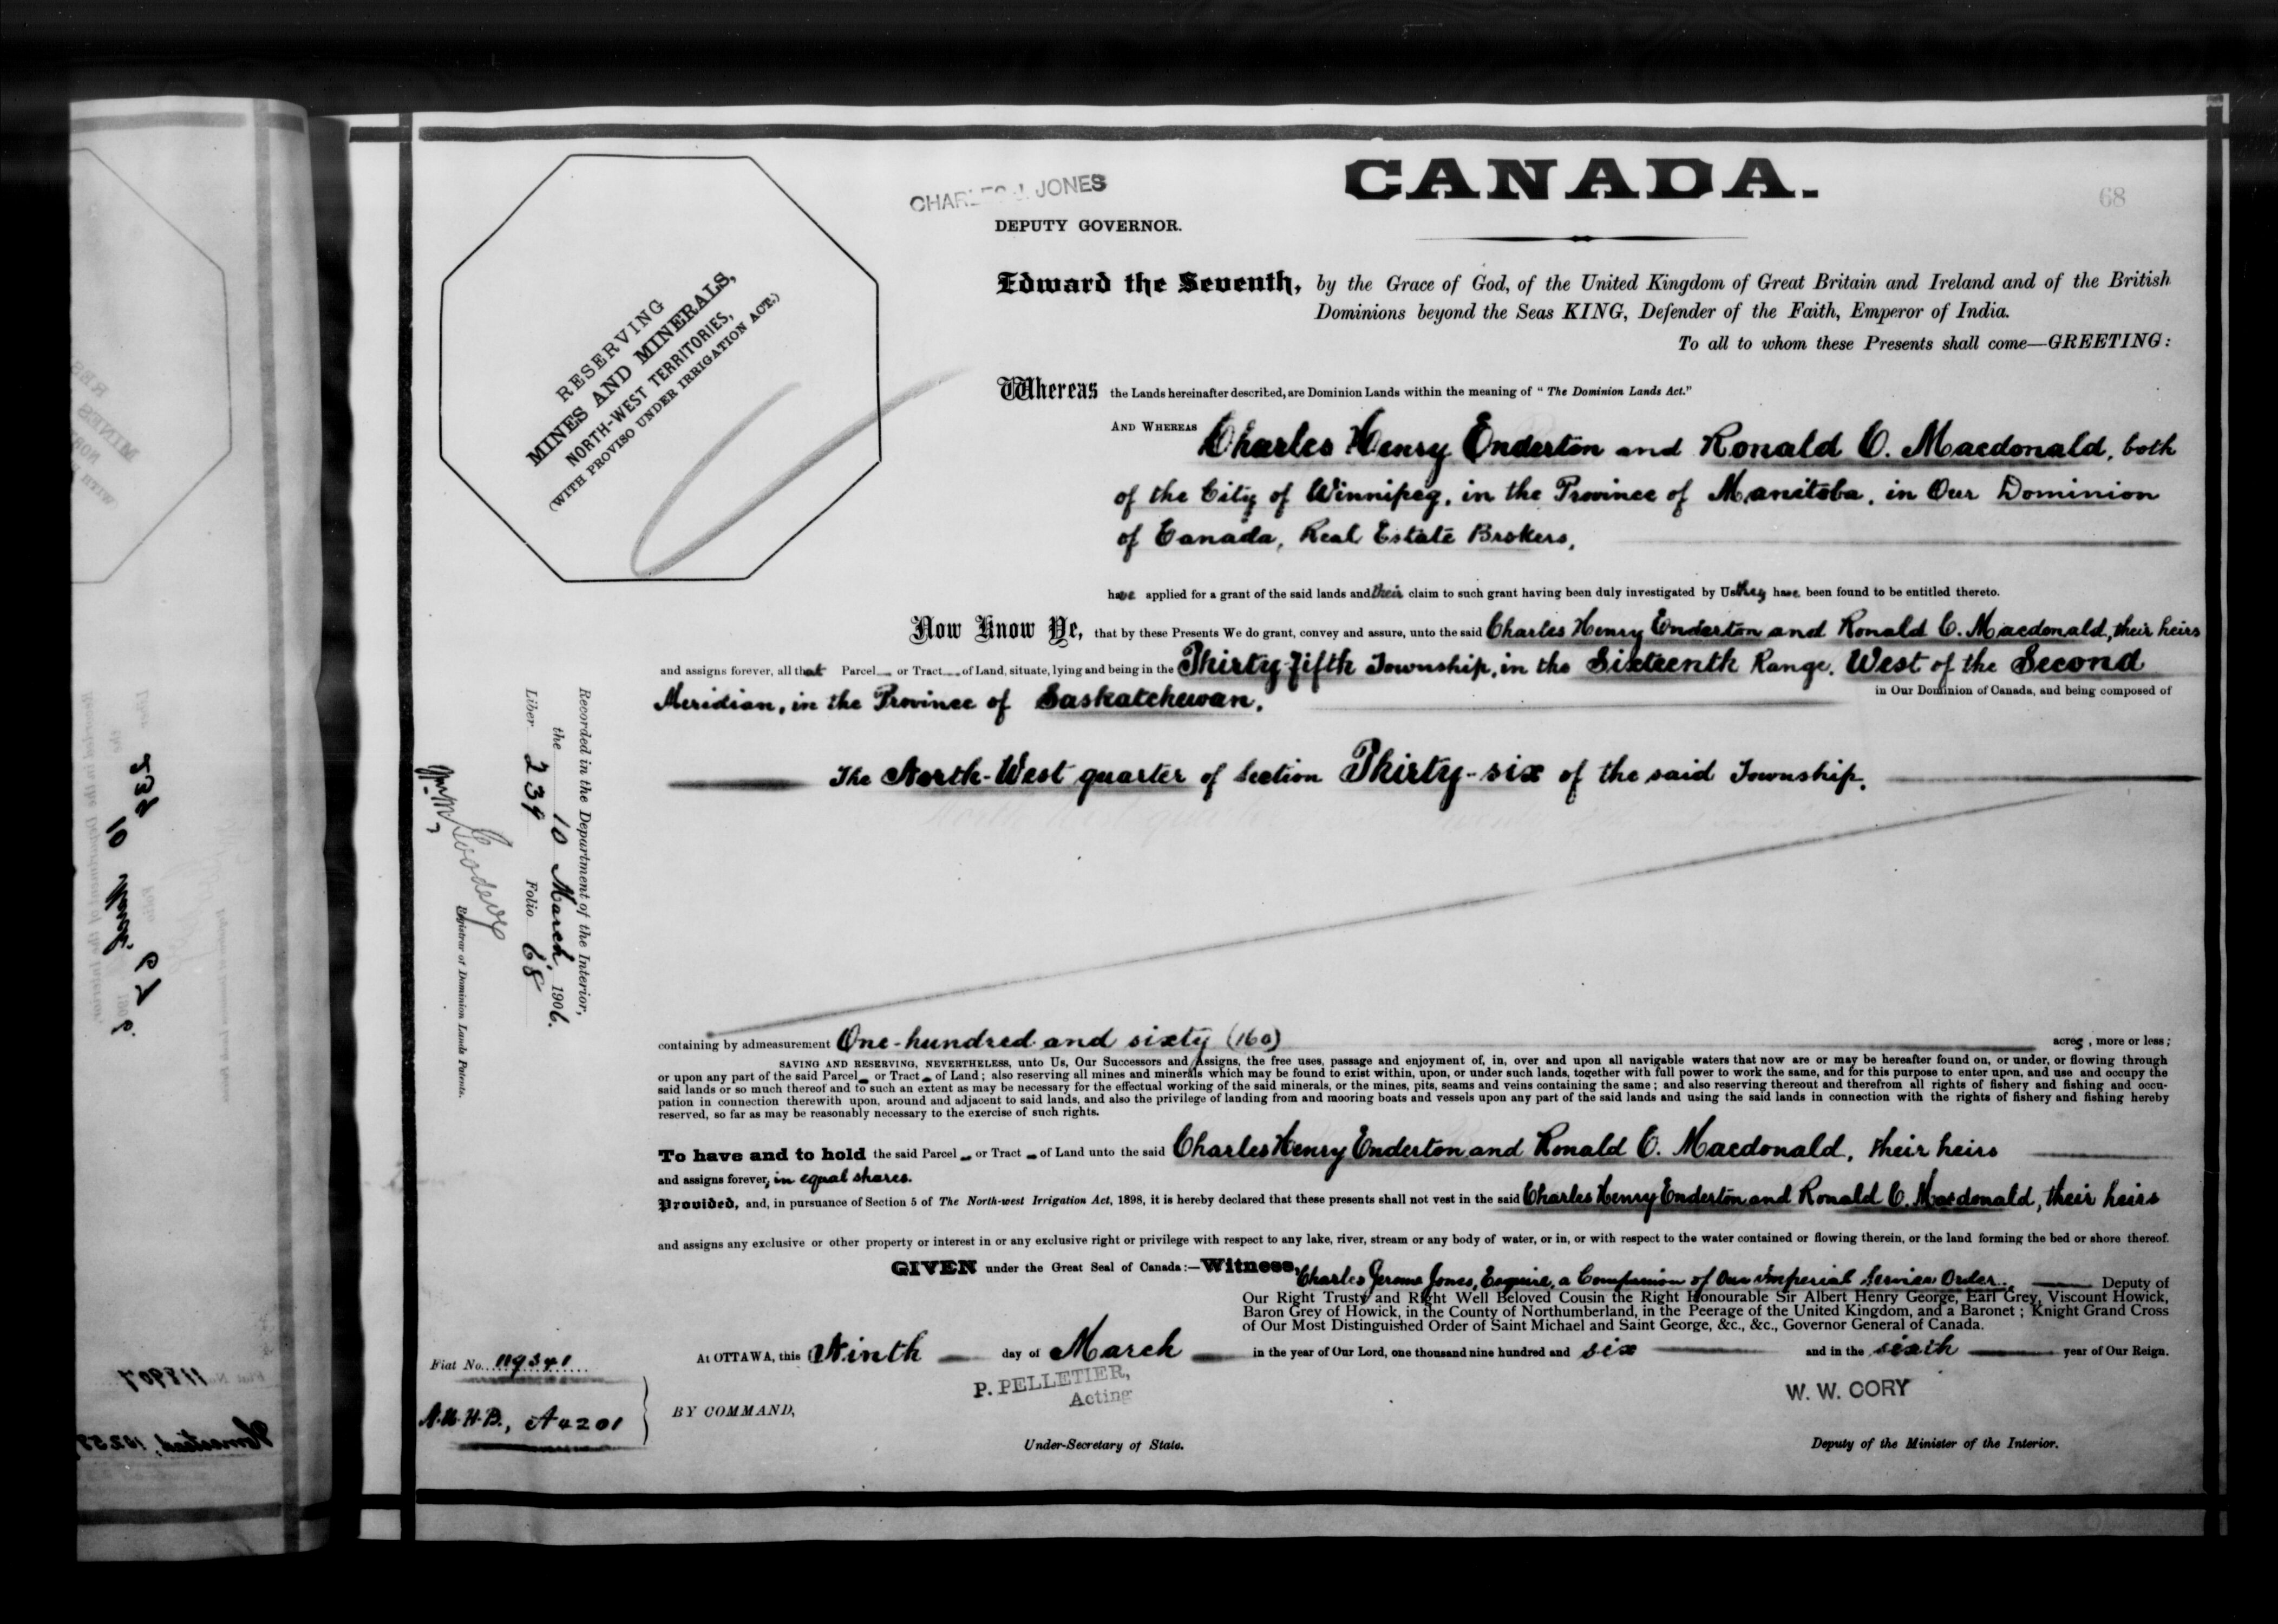 CANADA.
68
CHARLES J. JONES
DEPUTY GOVERNOR.
RESERVING
MINES AND MINERALS,
NORTH-WEST TERRITORIES,
(WITH PROVISO UNDER IRRIGATION ACT.)
Edward the Seventh, by the Grace of God, of the United Kingdom of Great Britain and Ireland and of the British
Dominions beyond the Seas KING, Defender of the Faith, Emperor of India.
To all to whom these Presents shall come—GREETING:
Whereas the Lands hereinafter described, are Dominion Lands within the meaning of "The Dominion Lands Act."
AND WHEREAS Charles Henry Enderton and Ronald C. Macdonald, both
of the City of Winnipeg, in the Province of Manitoba, in Our Dominion
of Canada, Real Estate Brokers,
have applied for a grant of the said lands and their claim to such grant having been duly investigated by Us they have been found to be entitled thereto.
Now Know Ye, that by these Presents We do grant, convey and assure, unto the said Charles Henry Enderton and Ronald C. Macdonald, their heirs
and assigns forever, all that Parcel or Tract of Land, situate, lying and being in the Thirty-fifth Township, in the Sixteenth Range, West of the Second
Meridian, in the Province of Saskatchewan, in Our Dominion of Canada, and being composed of
The North-West quarter of Section Thirty-six of the said Township.
Recorded in the Department of the Interior,
the 10 March, 1906.
Liber 239 Folio 68
Registrar of Dominion Lands Patents.
containing by admeasurement One hundred and sixty (160) acres, more or less;
SAVING AND RESERVING, NEVERTHELESS, unto Us, Our Successors and Assigns, the free uses, passage and enjoyment of, in, over and upon all navigable waters that now are or may be hereafter found on, or under, or flowing through
or upon any part of the said Parcel or Tract of Land; also reserving all mines and minerals which may be found to exist within, upon, or under such lands, together with full power to work the same, and for this purpose to enter upon, and use and occupy the
said lands or so much thereof and to such an extent as may be necessary for the effectual working of the said minerals, or the mines, pits, seams and veins containing the same; and also reserving thereout and therefrom all rights of fishery and fishing and occu-
pation in connection therewith upon, around and adjacent to said lands, and also the privilege of landing from and mooring boats and vessels upon any part of the said lands and using the said lands in connection with the rights of fishery and fishing hereby
reserved, so far as may be reasonably necessary to the exercise of such rights.
To have and to hold the said Parcel or Tract of Land unto the said Charles Henry Enderton and Ronald C. Macdonald, their heirs
and assigns forever, in equal shares.
Provided, and, in pursuance of Section 5 of The North-west Irrigation Act, 1898, it is hereby declared that these presents shall not vest in the said Charles Henry Enderton and Ronald C. Macdonald, their heirs
and assigns any exclusive or other property or interest in or any exclusive right or privilege with respect to any lake, river, stream or any body of water, or in, or with respect to the water contained or flowing therein, or the land forming the bed or shore thereof.
GIVEN under the Great Seal of Canada:—Witness, Charles Jerome Jones, Esquire, a Companion of Our Imperial Service Order, Deputy of
Our Right Trusty and Right Well Beloved Cousin the Right Honourable Sir Albert Henry George, Earl Grey, Viscount Howick,
Baron Grey of Howick, in the County of Northumberland, in the Peerage of the United Kingdom, and a Baronet; Knight Grand Cross
of Our Most Distinguished Order of Saint Michael and Saint George, &c., &c., Governor General of Canada.
At OTTAWA, this Ninth day of March in the year of Our Lord, one thousand nine hundred and six and in the sixth year of Our Reign.
Fiat No. 119341
A4201
BY COMMAND,
P. PELLETIER,
Acting
Under-Secretary of State.
W. W. CORY
Deputy of the Minister of the Interior.